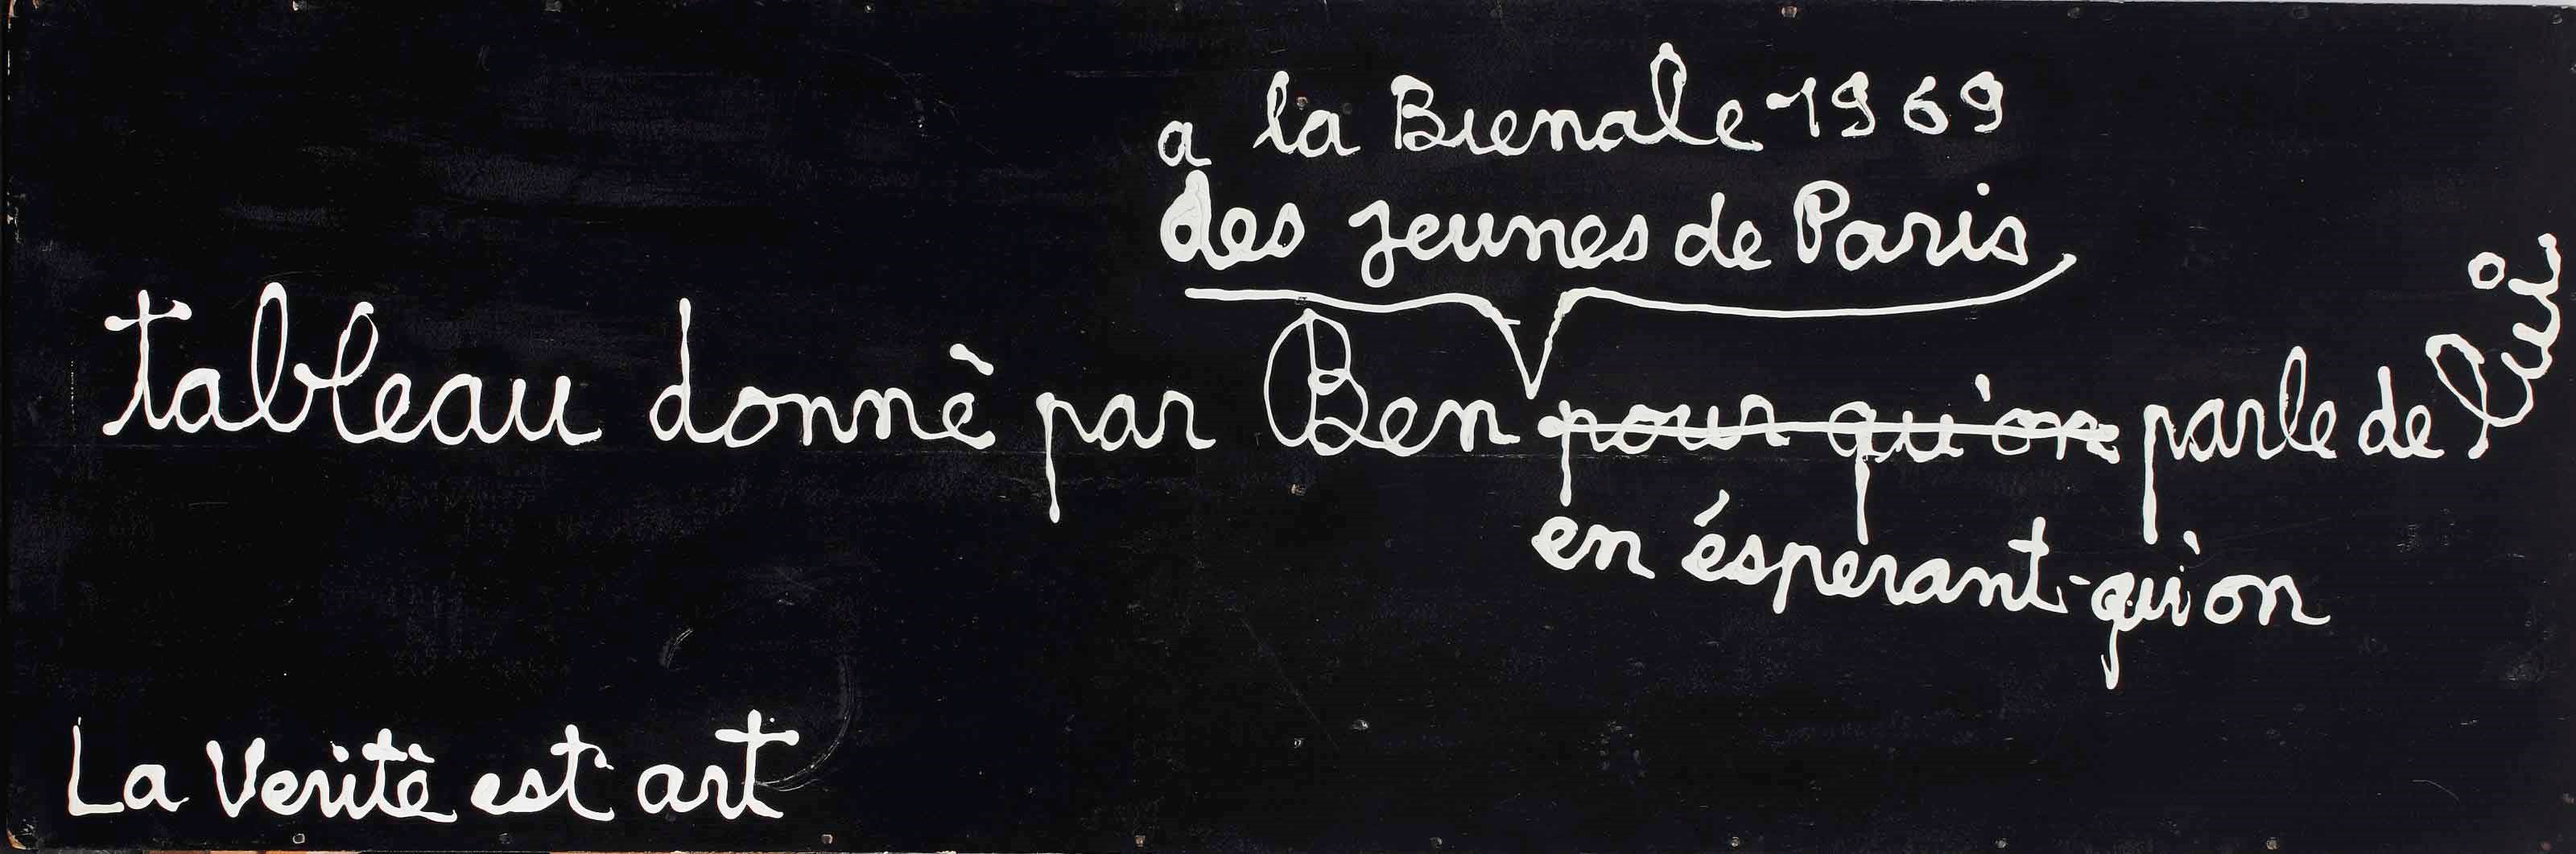 a la Bienale 1969
des jeunes de Paris
tableau donnè par Ben pour qu'on parle de lui
en ésperant-qu'on
La Veritè est art